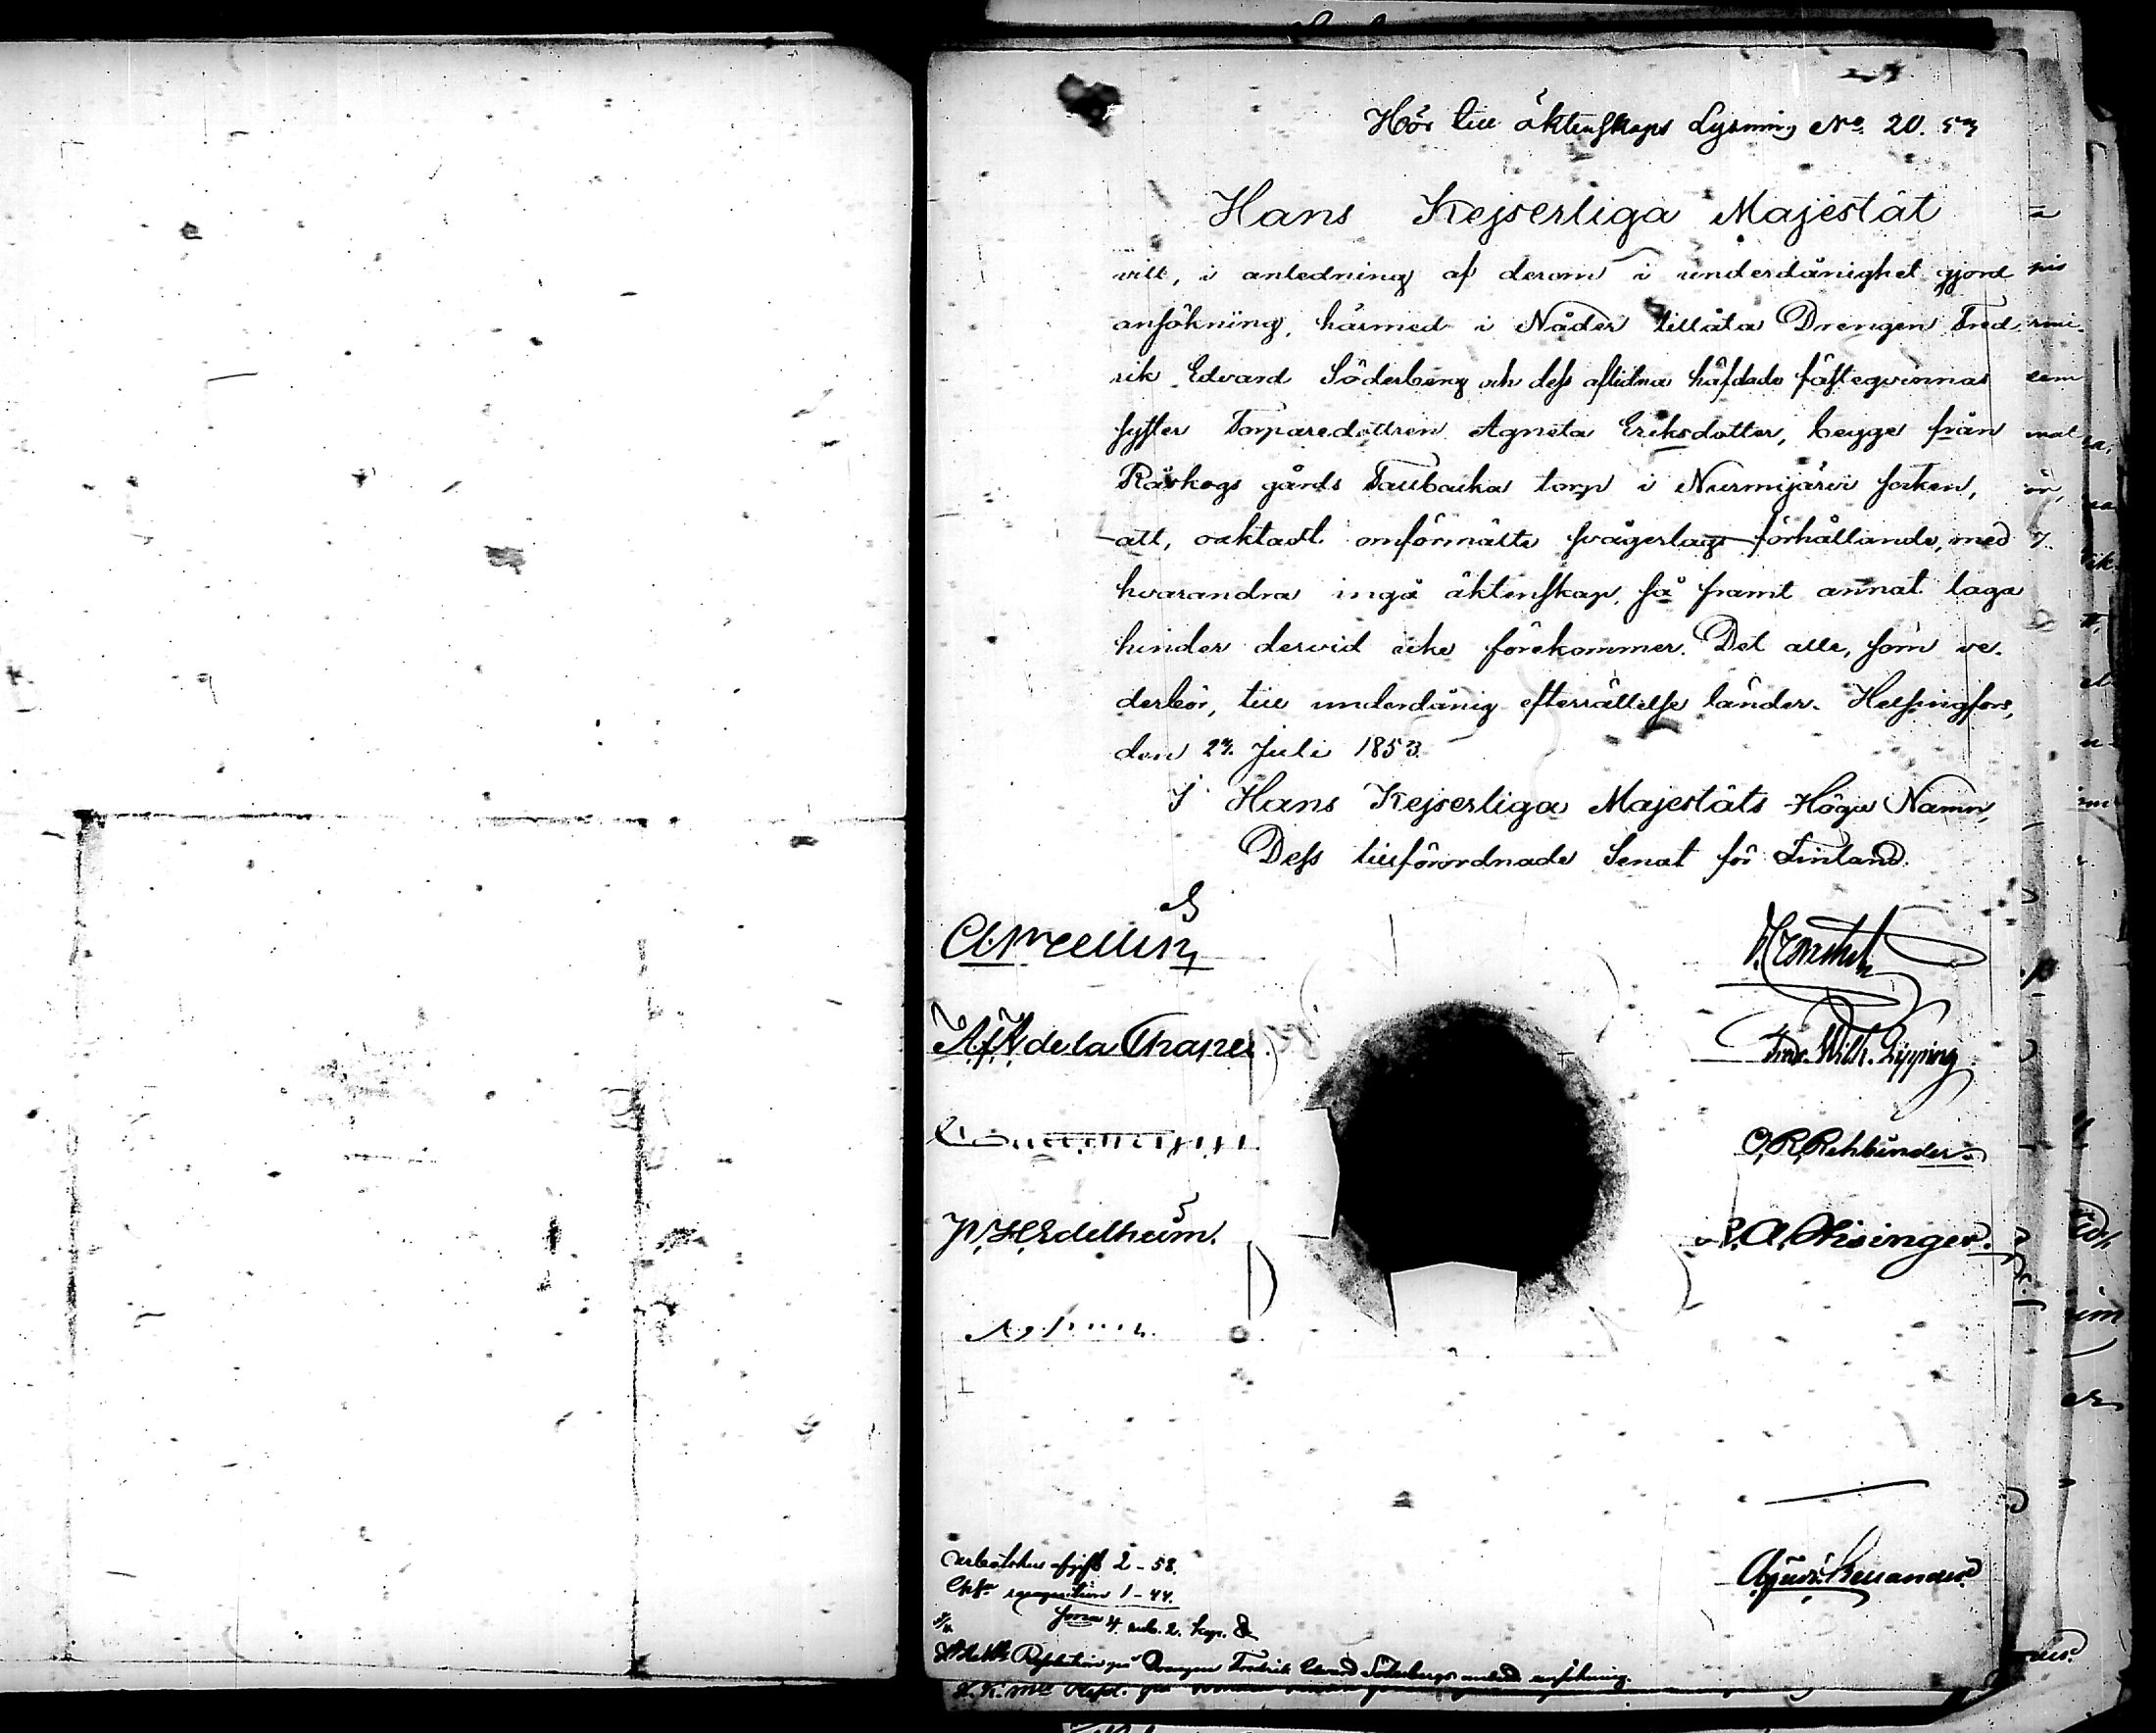 Hör till äktenskaps Lysning No. 20. 53
Hans Kejserliga Majestät
vill, i anledning af derom i underdånighet gjord
ansökning, härmed i Nåder tillåta Drengen Fred
rik Edvard Söderberg och dess aflidna häfdade fästeqvinnas
syster Torparedottren Agneta Eriksdotter, begge från
Räfskogs gårds Taubacka torp i Nurmijärvi socken,
att, oaktadt omförmälte svågerlags förhållande, med
hvarandra ingå äktenskap, så framt annat laga
hinder dervid icke förekommer. Det alle, som ve-
derbör, till underdånig efterrättelse länder. Helsingfors,
den 27. Juli 1853.
I Hans Kejserliga Majestäts Höga Namn,
Dess tillförordnade Senat för Finland.
C. Mellin
A. f. A. de la Chapelle.
Fredr. Wilh. Pipping
O. R. Rehbinder.
P. H. Edelheim.
A. Hisinger.
Arbetshus afgift 2 - 58.
expedition 1 - 44.
Summa 4 rub. 2. kop.
Resolution på Drengen Fredrik Edvard Söderbergs ansökning.